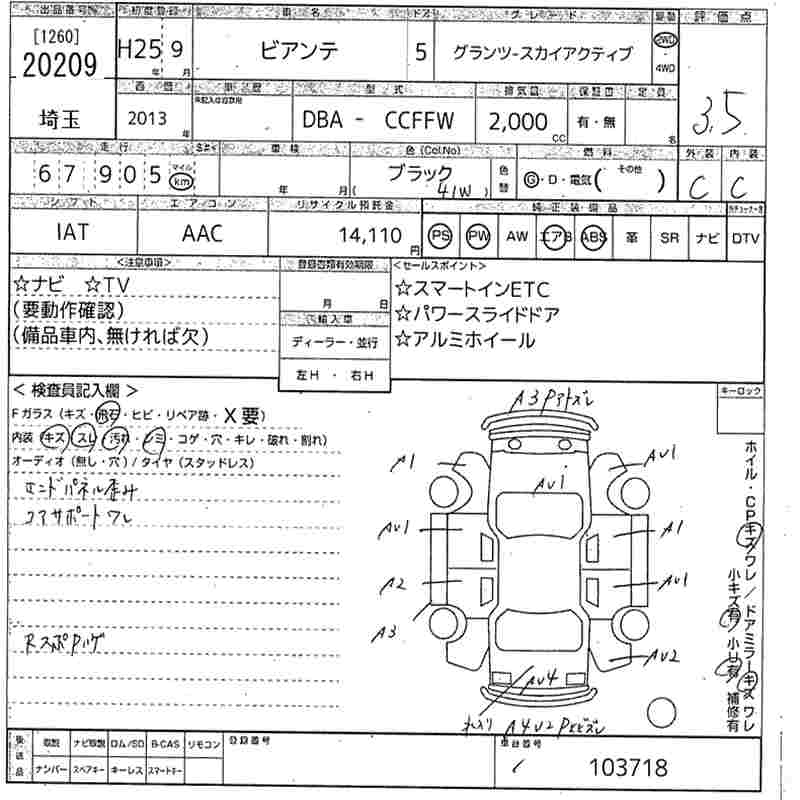 出品番号 初度登録 車名 ドア グレード 駆動 評価点
[1260]
20209 H25年 9月 ビアンテ 5 グランツースカイアクティブ 2WD・4WD 3.5
西暦 車歴 型式 排気量 保証書 定員
埼玉 2013年 DBA - CCFFW 2,000cc 有・無 名
走行 車検 色 (Col.No) 燃料 外装 内装
67905 マイル km 年 月 ブラック (41W) 色替 G・D・電気( その他 ) C C
シフト エアコン リサイクル預託金 純正装備品
IAT AAC 14,110円 PS PW AW エアB ABS 革 SR ナビ DTV
<注意事項> 登録書類有効期限 <セールスポイント>
☆ナビ ☆TV 月 日 ☆スマートインETC
(要動作確認) 輸入車 ☆パワースライドドア
(備品車内、無ければ欠) ディーラー・並行 ☆アルミホイール
左H・右H
<検査員記入欄> キーロック
Fガラス (キズ・飛石・ヒビ・リペア跡・X要)
内装 (キズ・スレ・汚れ・シミ・コゲ・穴・キレ・破れ・割れ)
オーディオ (無し・穴) / タイヤ (スタッドレス)
エンドパネル歪み
コアサポートワレ
A3
A1 AU1
AU1
AU1 A1
A2 AU1
A3
AU2
AU4
A4U2
ホイル・CPキズワレ / ドアミラーキズワレ
小キズ有 小U有 補修有
後送品 取説 ナビ取説 ロム/SD B-CAS リモコン 登録番号 車台番号
ナンバー スペアキー キーレス スマートキー 103718